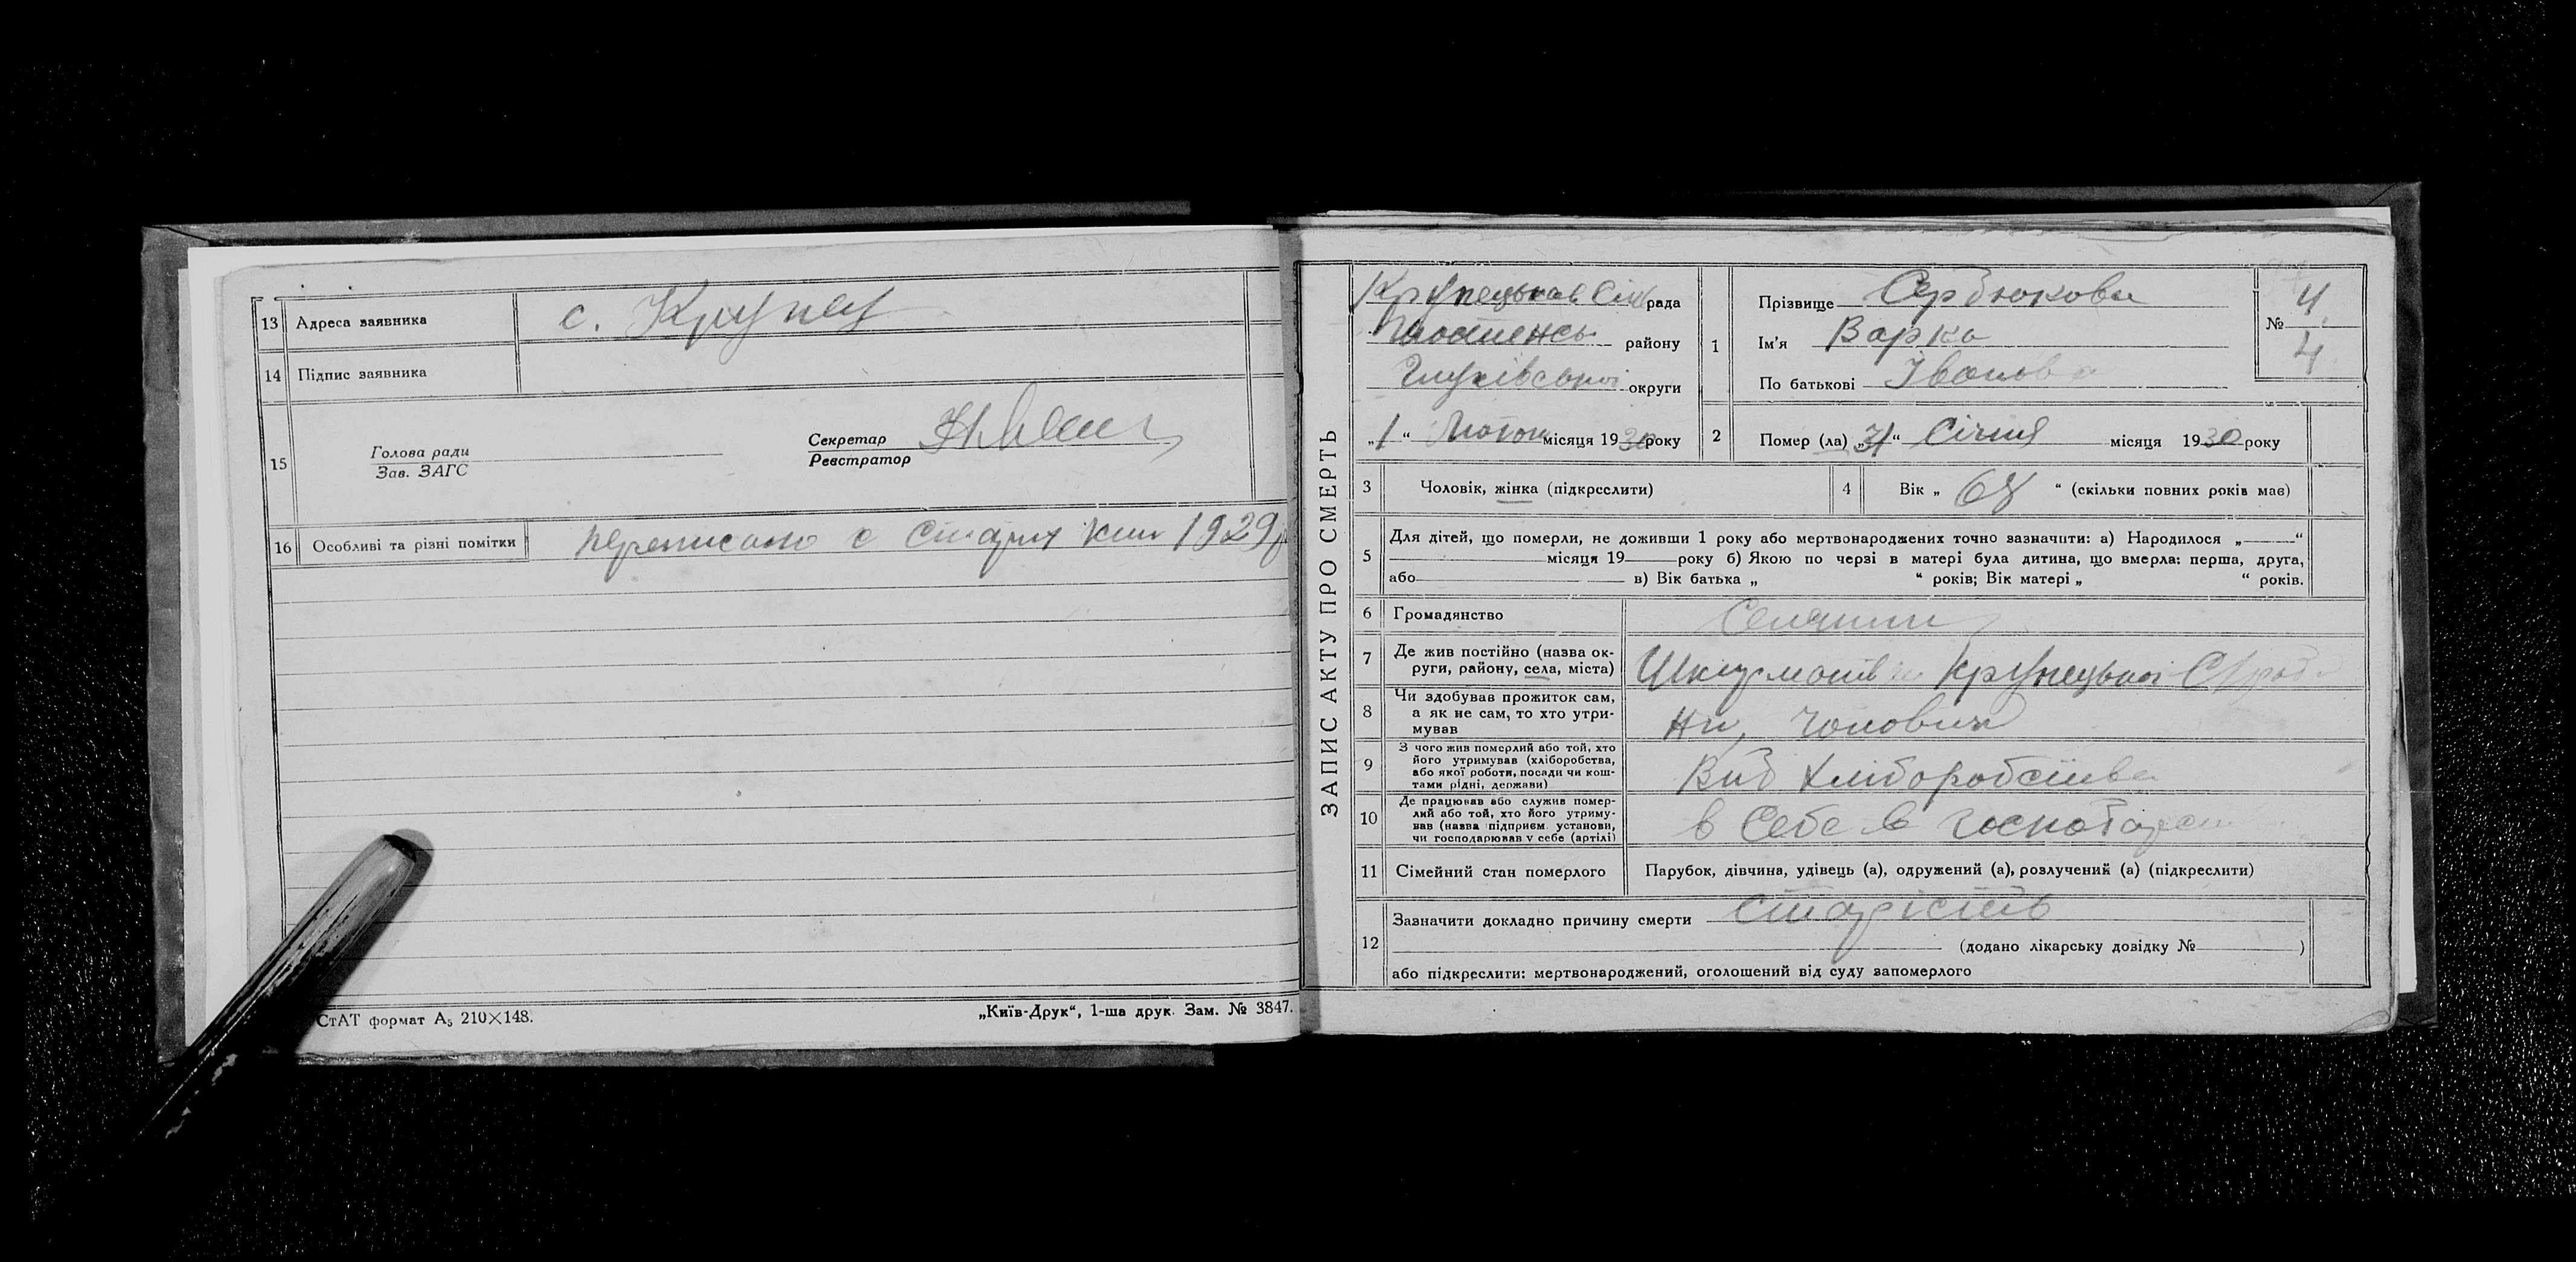 13 Адреса заявника с. Крупец
14 Підпис заявника
15 Голова ради
Зав. ЗАГС
Секретар
Реєстратор
16 Особливі та різні помітки переписано с старих книг 1929р
СтАТ формат А₅ 210×148.
„Київ-Друк“, 1-ша друк. Зам. № 3847.
ЗАПИС АКТУ ПРО СМЕРТЬ
Крупецькая Сіль рада
району
Глухівської округи
„1“ Лютого місяця 1930 року
1 Прізвище Сербюкова
Ім'я Варка
По батькові Іванова
№ 4
4
2 Помер (ла) „31“ Січня місяця 1930 року
3 Чоловік, жінка (підкреслити)
4 Вік „68“ (скільки повних років має)
5 Для дітей, що померли, не доживши 1 року або мертвонароджених точно зазначити: а) Народилося „ “
місяця 19 року б) Якою по черзі в матері була дитина, що вмерла: перша, друга,
або в) Вік батька „ “ років; Вік матері „ “ років.
6 Громадянство Селянин
7 Де жив постійно (назва ок-
руги, району, села, міста) Крупецької С/рад
8 Чи здобував прожиток сам,
а як не сам, то хто утри-
мував Ни, чоловик
9 З чого жив померлий або той, хто
його утримував (хліборобства,
або якої роботи, посади чи кош-
тами рідні, держави) Вид хліборобства
10 Де працював або служив помер-
лий або той, хто його утриму-
вав (назва підприєм. установи,
чи господарював у себе (артілі) в себе в господарст
11 Сімейний стан померлого Парубок, дівчина, удівець (а), одружений (а), розлучений (а) (підкреслити)
12 Зазначити докладно причину смерти старість
(додано лікарську довідку № )
або підкреслити: мертвонароджений, оголошений від суду запомерлого